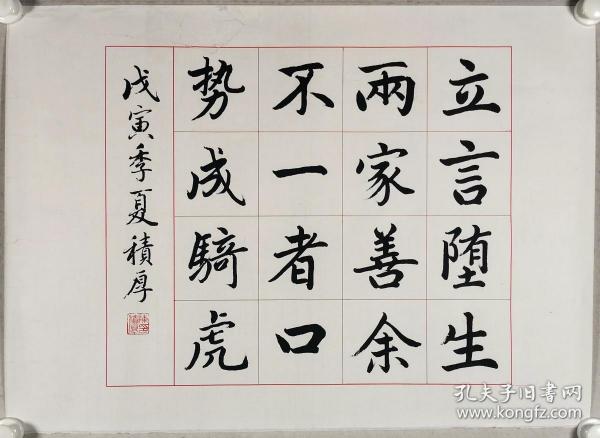 立言堕生
兩家善余
不一者口
勢成騎虎
戊寅季夏積厚
孔夫子旧书网
www.kongfz.com